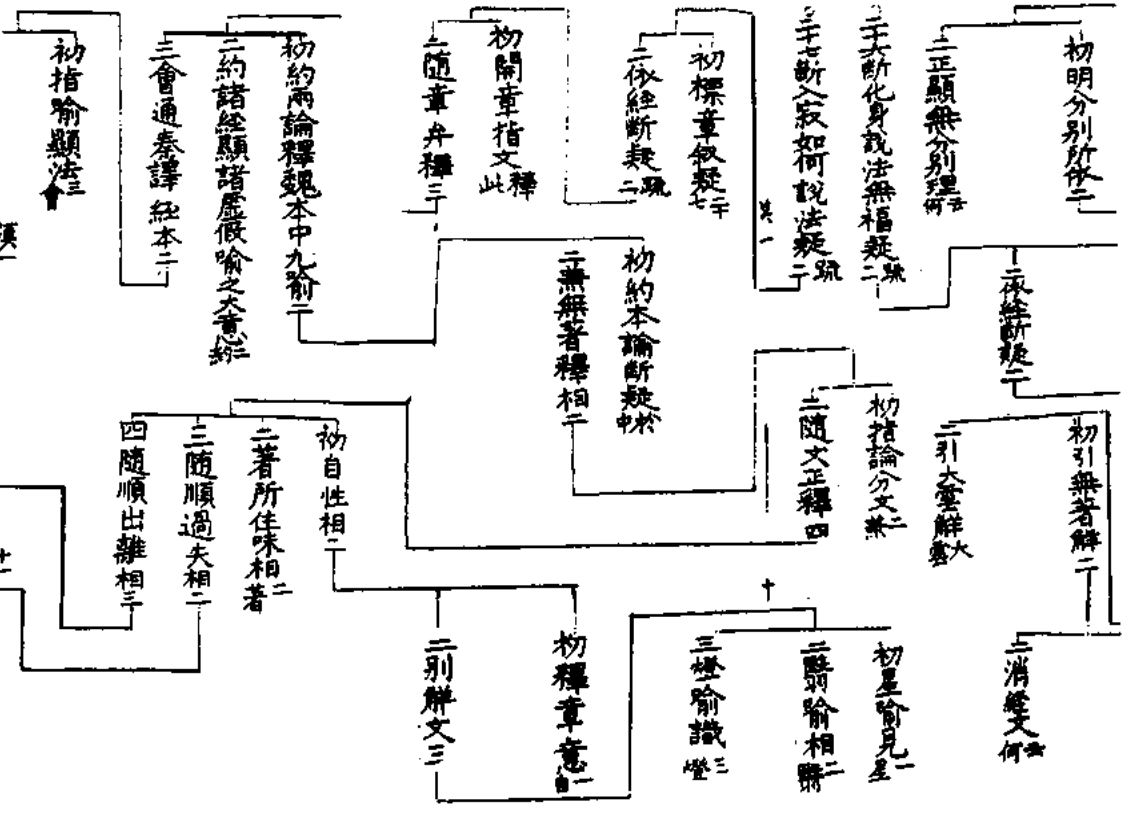 初明分別所依二
二正顯無分別理云何
二十六斷化身說法無福疑疏二
二十七斷入寂如何說法疑疏二
其一
初標章敘疑二十七
二依經斷疑疏二
初開章指文釋此
二隨章弁釋三
初約兩論釋魏本中九喻二
二約諸經顯諸虛假喻之大意二
三會通秦譯經本二
初指喻顯法三會
二依經斷疑二
初約本論斷疑於中
二兼無著釋相二
初引無著解二
二引大雲解大雲
初指論分文二兼
二隨文正釋四
初自性相二
二著所住味相二著
三隨順過失相二
四隨順出離相三
二消經文云何
初星喻見一星
二翳喻相二翳
三燈喻識三燈
十
初釋章意一自
二別解文三
十一